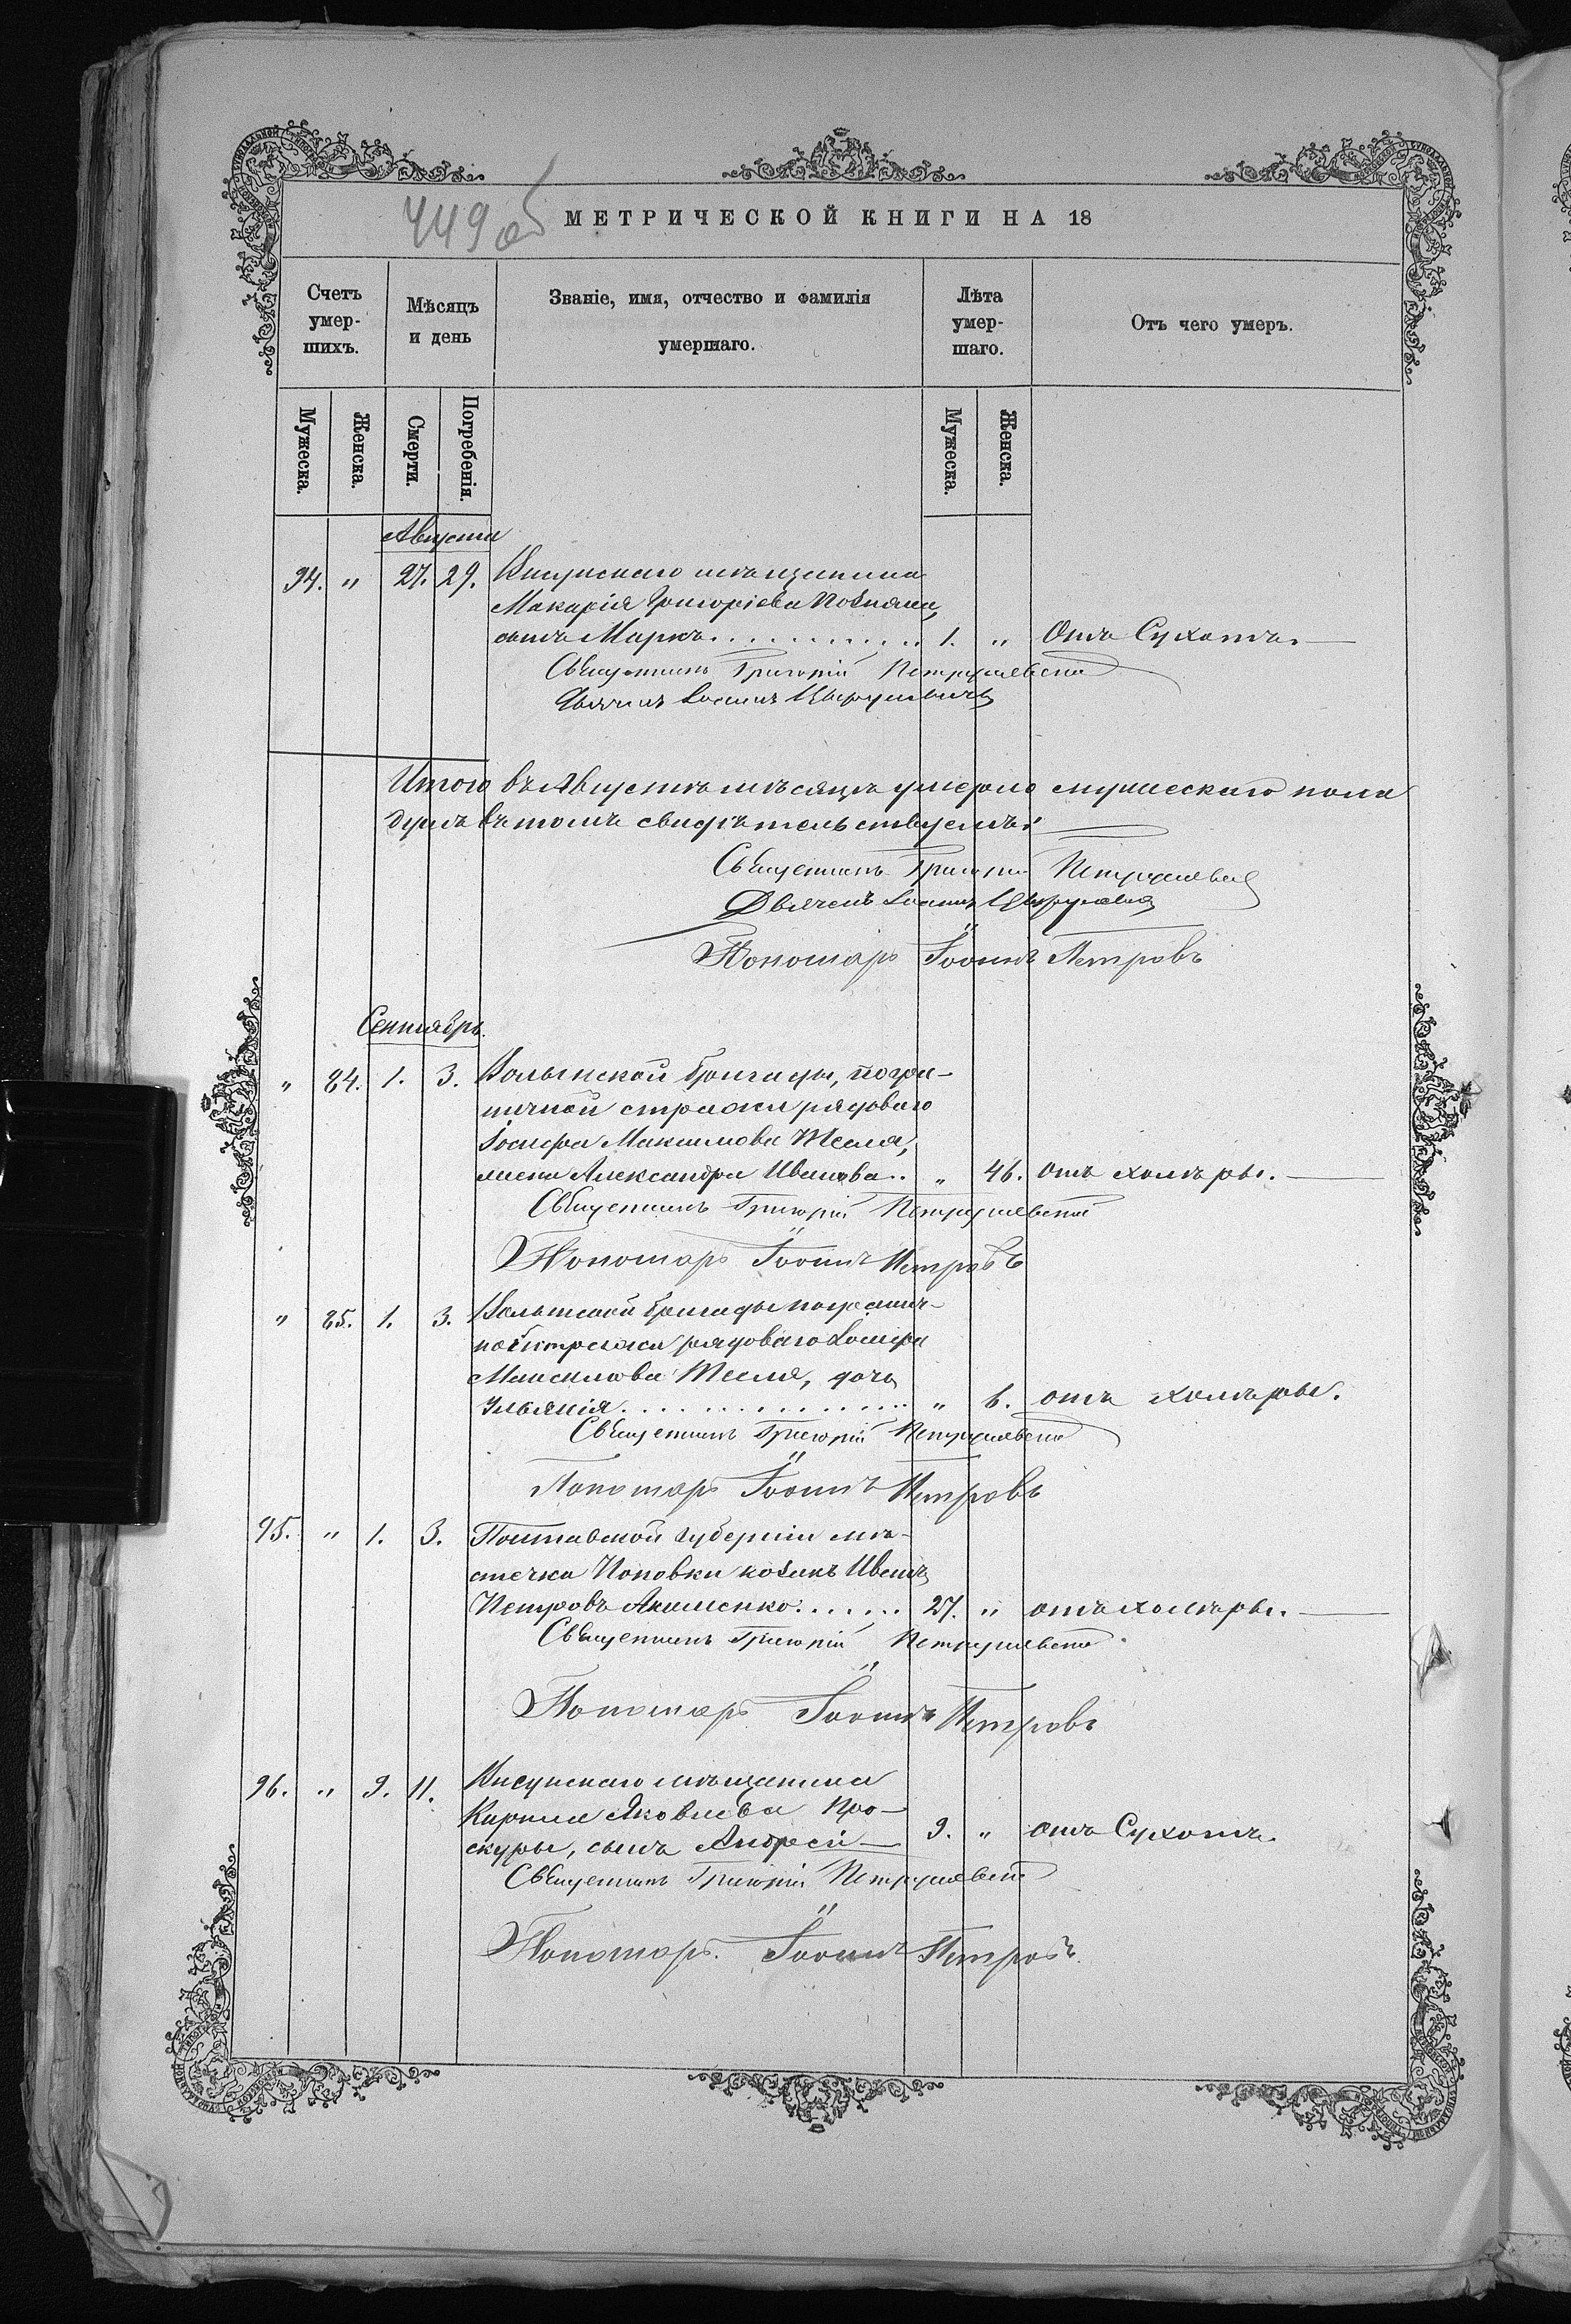 449 об
МЕТРИЧЕСКОЙ КНИГИ НА 18
Счетъ умер- шихъ.
Мѣсяцъ и день
Званіе, имя, отчество и фамилія умершаго.
Лѣта умер- шаго.
Отъ чего умеръ.
Мужеска.
Женска.
Смерти.
Погребенія.
Мужеска.
Женска.
Августа
94. " 27. 29. мѣщанина
Макарія Григоріева Позняка,
сынъ Маркъ. 1. " Отъ Сухотъ.
Священникъ Григорій Петрушевскій
Дьячекъ Іоаннъ
Итого въ Августѣ мѣсяцѣ умерло мужескаго пола
душъ въ томъ свидѣтельствуемъ:
Священникъ Григорій Петрушевскій
Дьячекъ Іоаннъ
Пономарь Іоаннъ Петровъ
Сентябрь.
" 84. 1. 3. Волынской бригады, погра-
ничной стражи рядоваго
Іосифа Максимова Тесля,
жена Александра Иванова.. " 46. отъ холѣры.
Священникъ Григорій Петрушевскій
Пономарь Іоаннъ Петровъ
" 85. 1. 3. Волынской бригады погранич-
ной стражи рядоваго Іосифа
Максимова Тесля, дочь
" 6. отъ холѣры.
Священникъ Григорій Петрушевскій
Пономарь Іоаннъ Петровъ
95. " 1. 3. Полтавской губерніи мѣ-
стечка Поповки козакъ Иванъ
Петровъ Акименко. 27. " отъ холѣры.
Священникъ Григорій Петрушевскій
Пономарь Іоаннъ Петровъ
96. " 9. 11. мѣщанина
Кирила Яковлева Про-
скуры, сынъ Андрей 9. " отъ Сухотъ.
Священникъ Григорій Петрушевскій
Пономарь. Іоаннъ Петровъ.